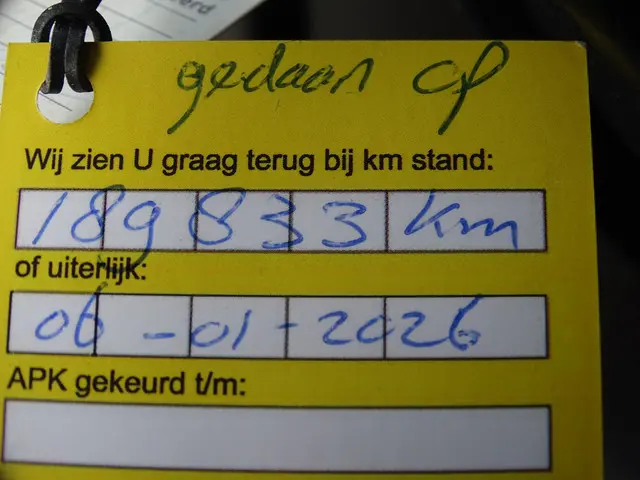 gedaan op
Wij zien U graag terug bij km stand:
189833 km
of uiterlijk:
06-01-2026
APK gekeurd t/m: